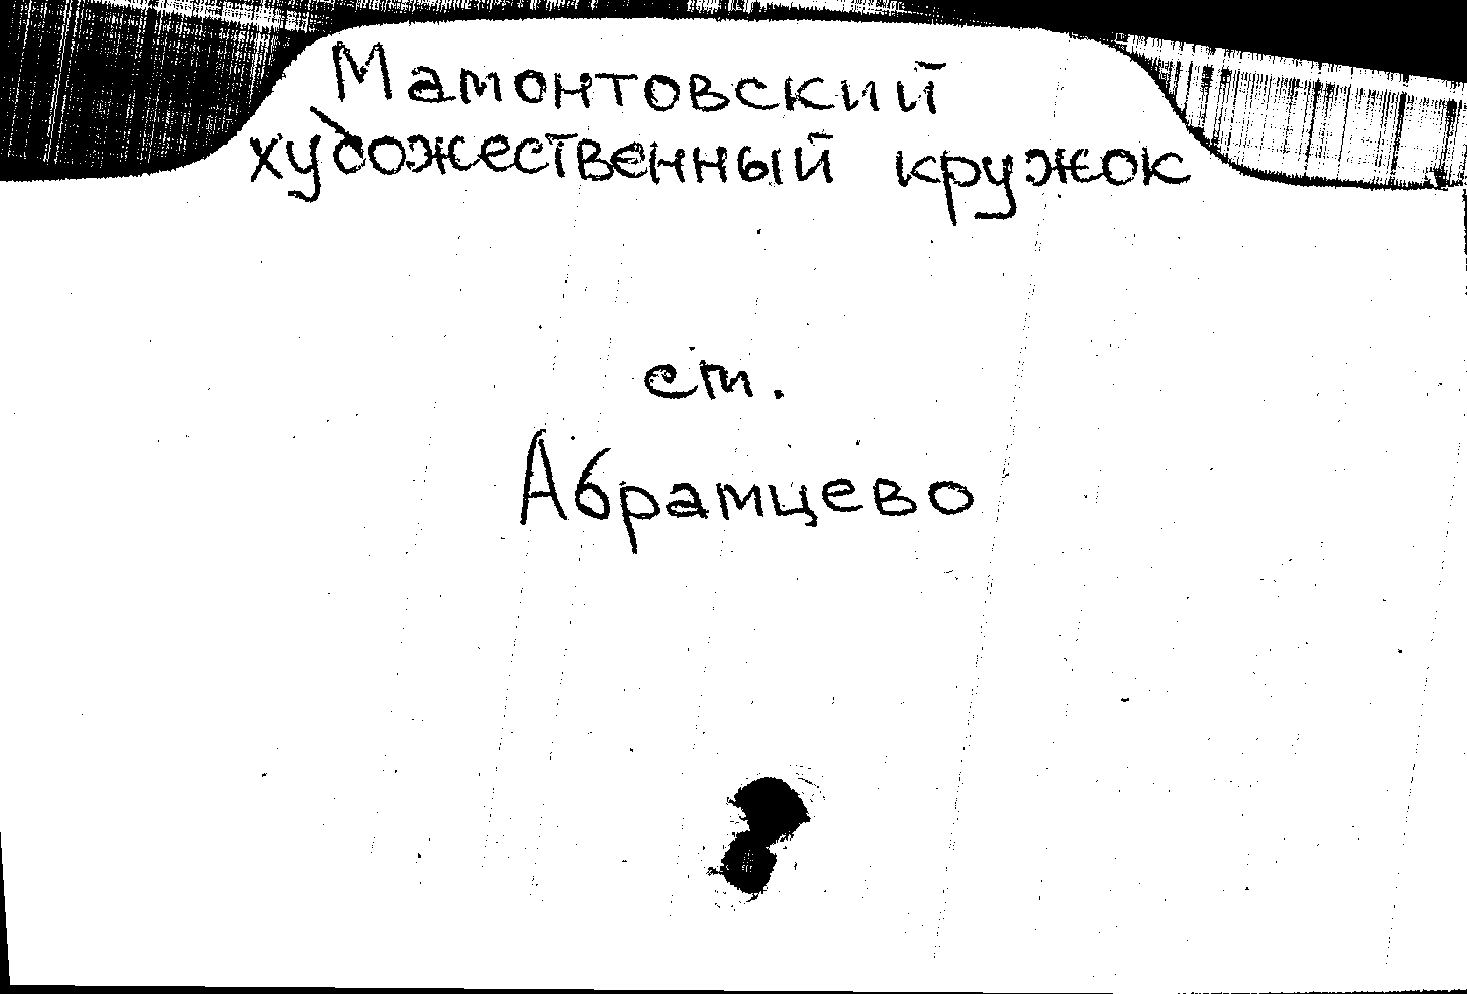 Мамонтовский
художественный кружок
ст.
Абрамцево